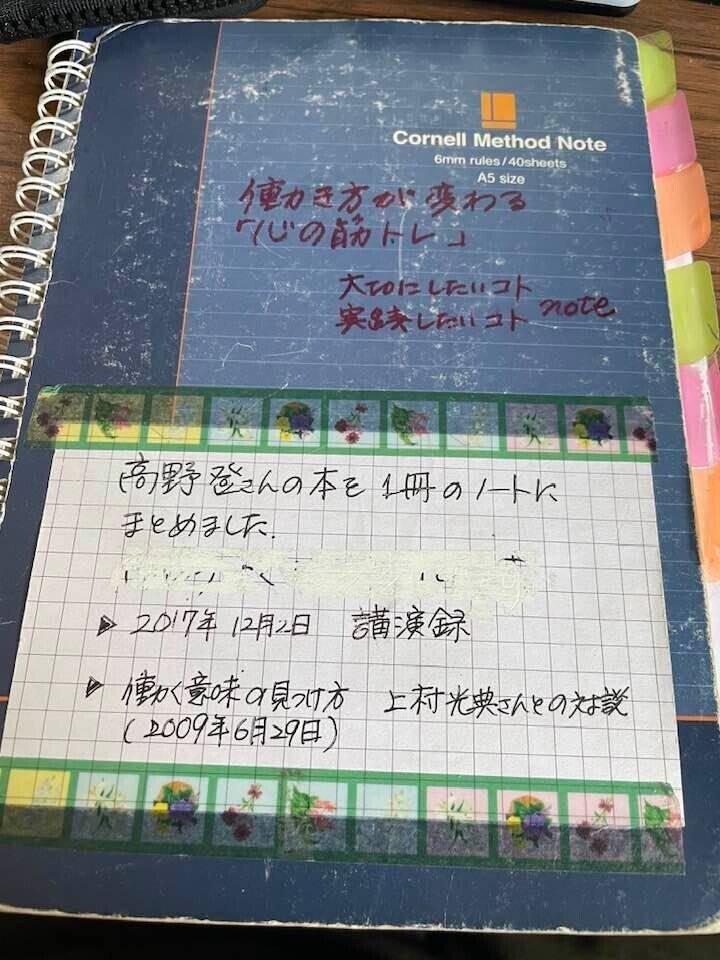 Cornell Method Note
6mm rules/40sheets
A5 size
働き方が変わる
「心の筋トレ」
大切にしたいコト
実践したいコト note
高野登さんの本を1冊のノートに
まとめました.
▶ 2017年12月2日 講演録
▶ 働く意味の見つけ方 上村光典さんとの対談
(2009年6月29日)